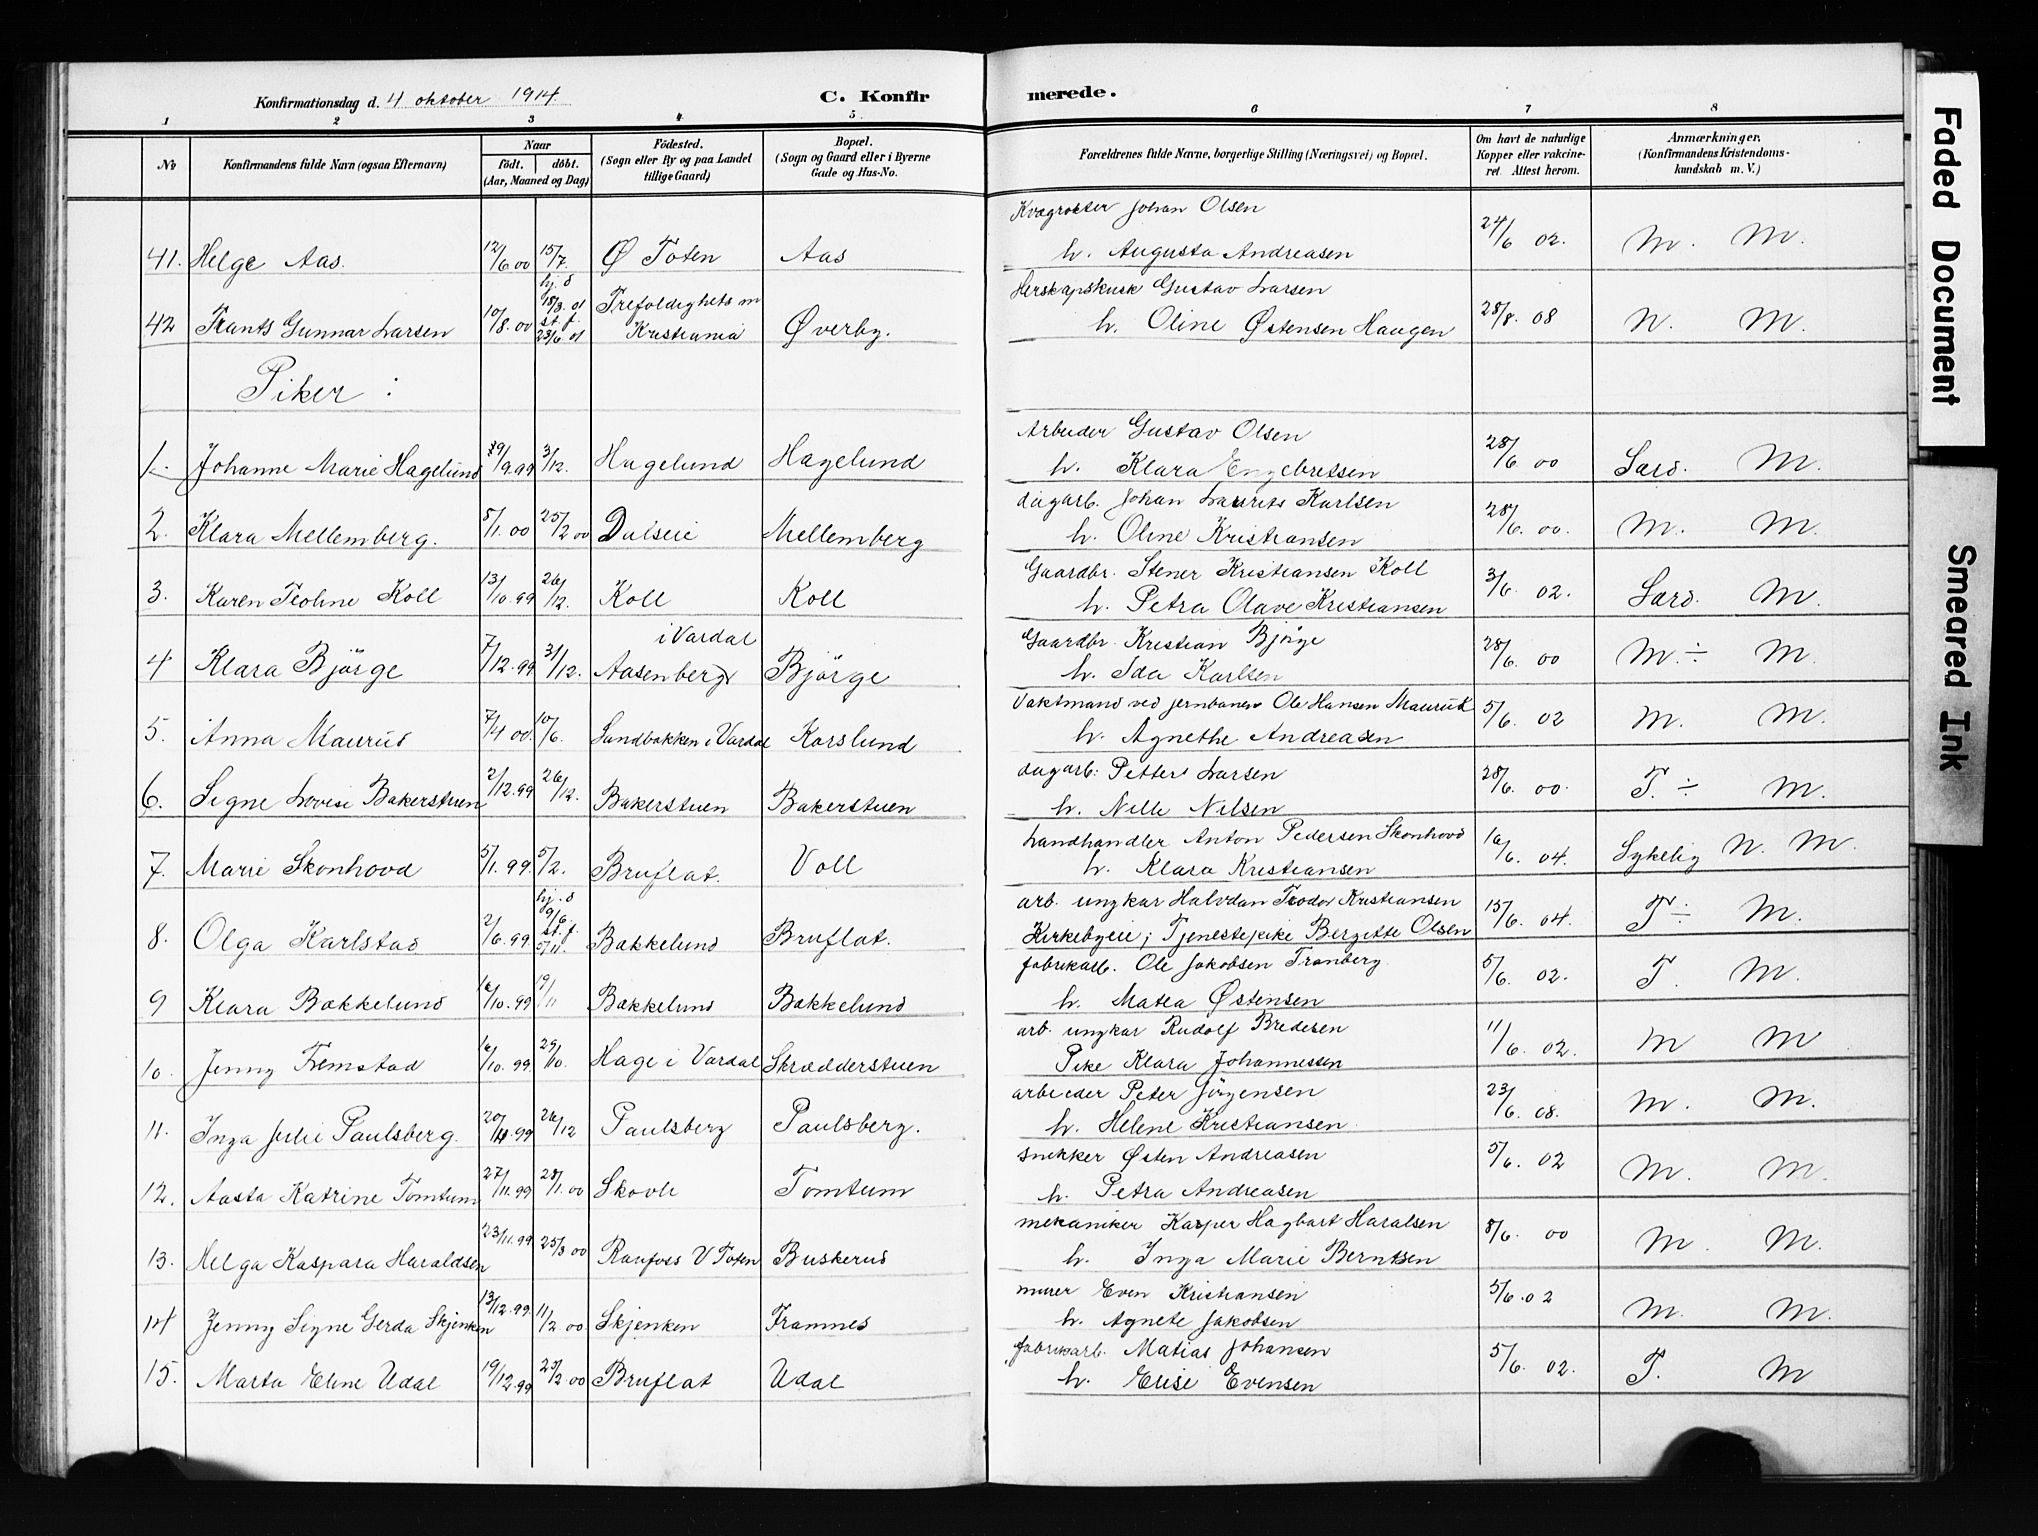 Konfirmationsdag d. 4 oktober 1914
C. Konfir
merede.
1 2 3 4 5 6 7 8
No
Konfirmandens fulde Navn (ogsaa Efternavn)
Naar
født. døbt.
(Aar, Maaned og Dag)
Fødested.
(Sogn eller By og paa Landet
tillige Gaard)
Bopæl.
(Sogn og Gaard eller i Byerne
Gade og Hus-No.
Forældrenes fulde Navne, borgerlige Stilling (Næringsvei) og Bopæl.
Om havt de naturlige
Kopper eller vakcine-
ret. Attest herom.
Anmærkninger.
(Konfirmandens Kristendoms-
kundskab m. V.)
Kvægrøkter Johan Olsen
41. Helge Aas. 12/6.00 15/7. Ø Toten Aas h. Augusta Andreasen 24/6 02. M. M.
hj. d
18/3. 01 Trefoldighets m Herskapskusk Gustav Larsen
42 Frants Gunnar Larsen 10/8.00 st. f. 23/6 01 Kristiania Øverby. h. Oline Østensen Haugen 28/8. 08 N. M.
Piker :
Arbeider Gustav Olsen
1. Johanne Marie Hagelund 29/9.99 3/12. Hagelund Hagelund h. Klara Engebretsen 28/6 00 Særd. M.
dagarb. Johan Laurits Karlsen
2. Klara Mellemberg. 8/1.00 25/2 00 Dalseie Mellemberg h. Oline Kristiansen 28/6. 00. M. M.
Gaardbr. Stener Kristiansen Koll
3. Karen Teoline Koll 13/10.99 26/12. Koll Koll h. Petra Olave Kristiansen 3/6. 02. Særd. M.
i Vardal Gaardbr. Kristian Bjørge
4 Klara Bjørge 7/12.99 31/12. Aasenberg Bjørge h. Ida Karlsen 28/6. 00 M. ÷ M.
Vaktmand ved jernbanen Ole Hansen Maurud
5. Anna Maurud 7/4 00. 10/6. Sandbakken i Vardal Karslund h. Agnethe Andreasen 5/6. 02 M. M.
dagarb: Petter Larsen
6. Signe Lovise Bakerstuen 2/12.99 26/12. Bakerstuen Bakerstuen h. Nille Nilsen 28/6. 00. T. ÷ M.
Landhandler Anton Pedersen Skonhovd
7. Marie Skonhovd 5/1.99. 5/2. Bruflat. Voll h. Klara Kristiansen 16/6. 04. Sykelig N. M.
hj. d
9/6. arb. ungkar Halvdan Teodor Kristiansen
8. Olga Karlstad 2/6.99 st. f. 5/11. Bakkelund Bruflat. Kirkebyeie; Tjenestepike Bergitte Olsen 15/6. 04. T ÷ M.
fabrikarb. Ole Jakobsen Tranberg.
9 Klara Bakkelund 16/10.99 19/11 Bakkelund Bakkelund h. Matea Østensen 5/6. 02. T. M.
arb. ungkar Rudolf Bredesen
10. Jenny Fremstad 16/10.99. 29/10. Hage i Vardal Skrædderstuen Pike Klara Johannessen 11/6. 02. M M
arbeider Peter Jørgensen
11. Inga Julie Paulsberg. 20/11.99 26/12 Paulsberg Paulsberg. h. Helene Kristiansen. 23/6. 08. M. M.
snekker Østen Andreasen
12. Aasta Katrine Tomtum 27/11.99 28/1.00 Skovli Tomtum h. Petra Andreasen 5/6. 02 M. M.
mekaniker Kasper Hagbart Haralsen
13. Helga Kaspara Haraldsen 23/11.99 25/3 00 Raufoss V Toten Buskerud h. Inga Marie Berntsen 8/6. 00 M. M.
murer Even Kristiansen
14 Jenny Signe Gerda Skjenken 13/12.99. 11/2 00. Skjenken Framnes h. Agnete Jakobsen 5/6.02 M. M.
fabrikarb. Matias Johansen
15. Marta Eline Udal 19/12.99 25/2.00 Bruflat Udal h. Elise Evensen 5/6. 02. T. M
Faded Document
Smeared Ink